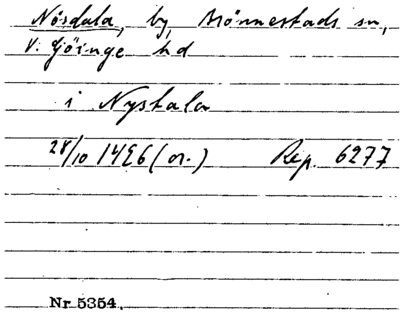 Nösdala, by, Önnestads sn,
V. Göinge hd
i Nysdala
28/10 1496 (or.) Rep. 6277
Nr 5354.